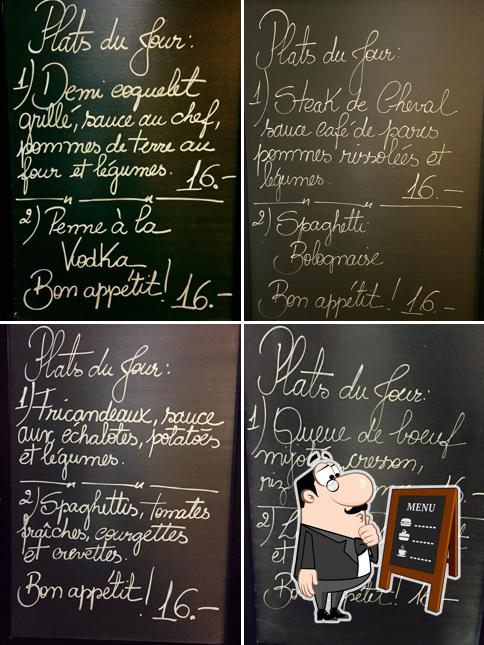 Plats du Jour:
1) Demi coquelet
grillé, sauce au chef,
pommes de terre au
four et légumes. 16.-
2) Penne à la
Vodka
Bon appétit! 16.-
Plats du Jour:
1) Steak de Cheval
sauce café de paris
pommes rissolées et
légumes. 16.-
2) Spaghetti
Bolognaise
Bon appétit! 16.-
Plats du Jour:
1) Fricandeaux, sauce
aux échalotes, potatoes
et légumes.
2) Spaghettis, tomates
fraîches, courgettes
et crevettes.
Bon appétit! 16.-
Plats du Jour:
1) Queue de boeuf
cresson,
2)
et
MENU